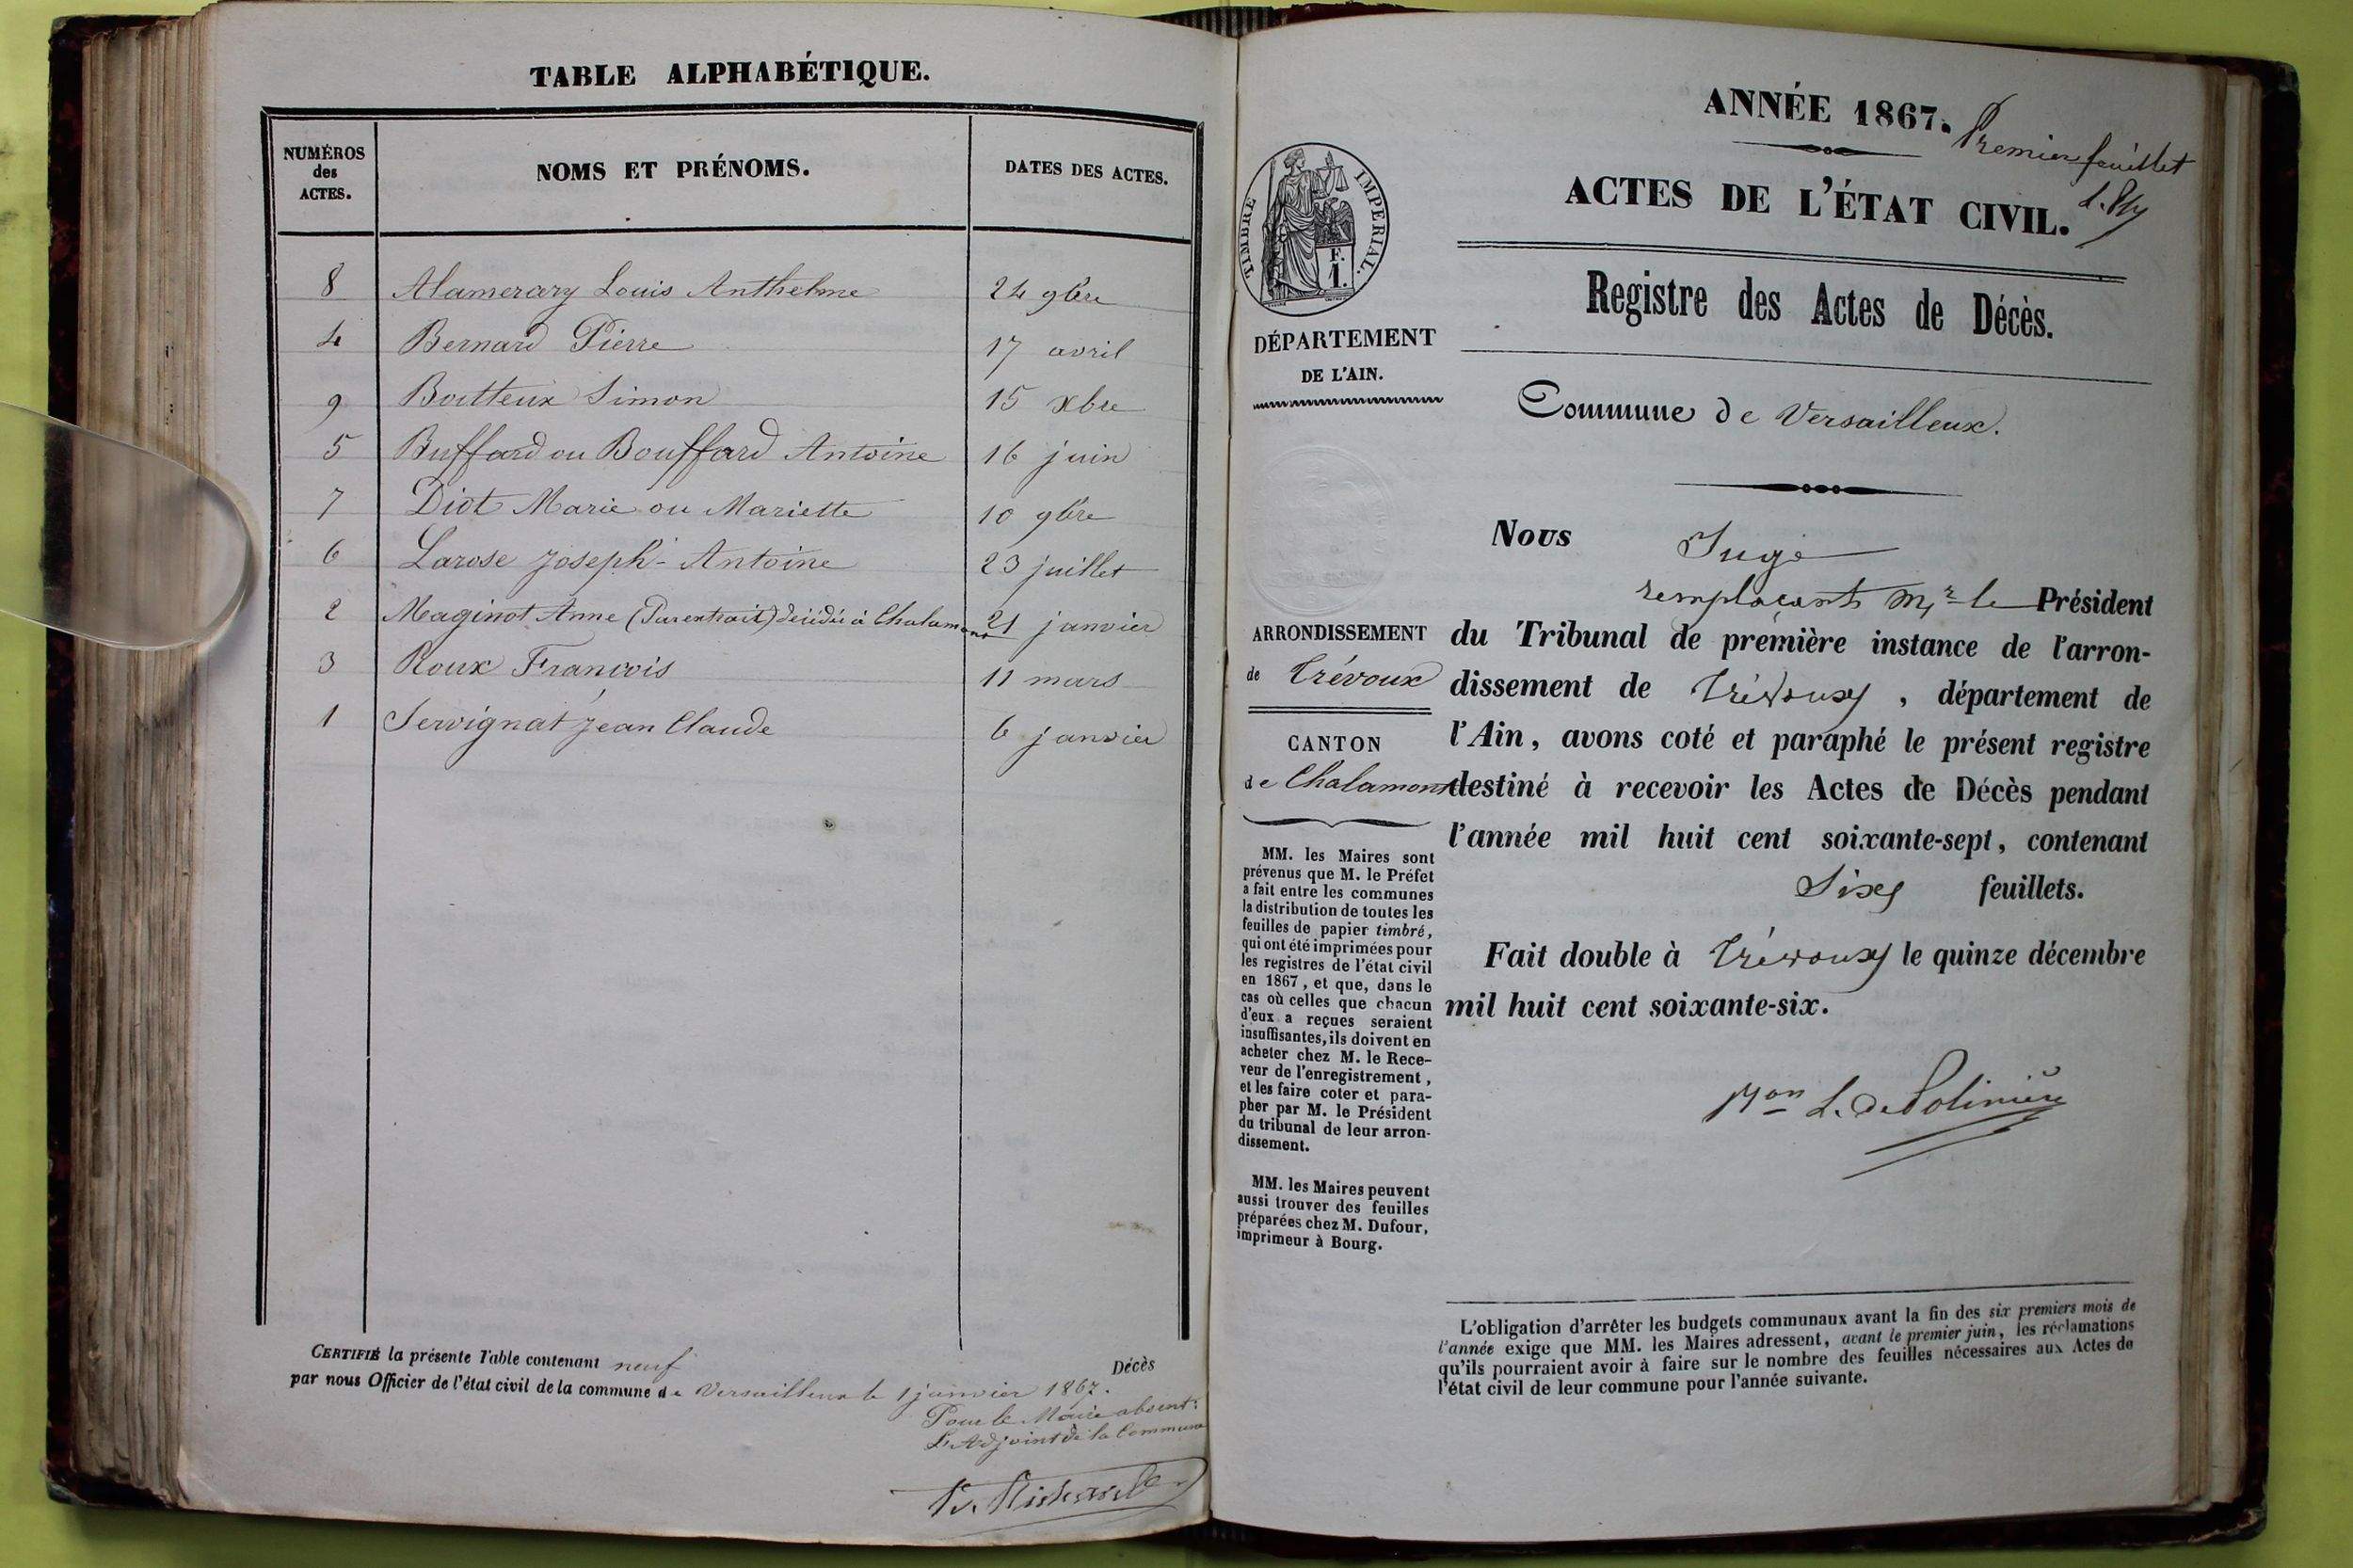 TABLE ALPHABÉTIQUE.
NUMÉROS
des
ACTES.
NOMS ET PRÉNOMS.
DATES DES ACTES.
8 Alamercery Louis Anthelme 24 9bre
4 Bernard Pierre 17 avril
9 Boitteux Simon 15 xbre
5 Buffard ou Bouffard Antoine 16 juin
7 Diot Marie ou Mariette 10 9bre
6 Larose Joseph-Antoine 23 juillet
2 Maginot Anne (Par extrait) décédée à Chalamont 21 janvier
3 Roux François 11 mars
1 Servignat Jean Claude 6 janvier
CERTIFIÉ la présente Table contenant neuf Décès
par nous Officier de l'état civil de la commune de Versailleux le 1 janvier 1867.
Pour le Maire absent:
L'Adjoint de la Commune
ANNÉE 1867.
Premier feuillet
ACTES DE L'ÉTAT CIVIL.
Registre des Actes de Décès.
Commune de Versailleux.
TIMBRE IMPÉRIAL.
F.
1.
DÉPARTEMENT
DE L'AIN.
ARRONDISSEMENT
de Trévoux
CANTON
de Chalamont
MM. les Maires sont
prévenus que M. le Préfet
a fait entre les communes
la distribution de toutes les
feuilles de papier timbré,
qui ont été imprimées pour
les registres de l'état civil
en 1867, et que, dans le
cas où celles que chacun
d'eux a reçues seraient
insuffisantes, ils doivent en
acheter chez M. le Rece-
veur de l'enregistrement,
et les faire coter et para-
pher par M. le Président
du tribunal de leur arron-
dissement.
MM. les Maires peuvent
aussi trouver des feuilles
préparées chez M. Dufour,
imprimeur à Bourg.
Nous Juge
remplaçant Mr le Président
du Tribunal de première instance de l'arron-
dissement de Trévoux, département de
l'Ain, avons coté et paraphé le présent registre
destiné à recevoir les Actes de Décès pendant
l'année mil huit cent soixante-sept, contenant
Six feuillets.
Fait double à Trévoux le quinze décembre
mil huit cent soixante-six.
L. de Polinière
L'obligation d'arrêter les budgets communaux avant la fin des six premiers mois de
l'année exige que MM. les Maires adressent, avant le premier juin, les réclamations
qu'ils pourraient avoir à faire sur le nombre des feuilles nécessaires aux Actes de
l'état civil de leur commune pour l'année suivante.